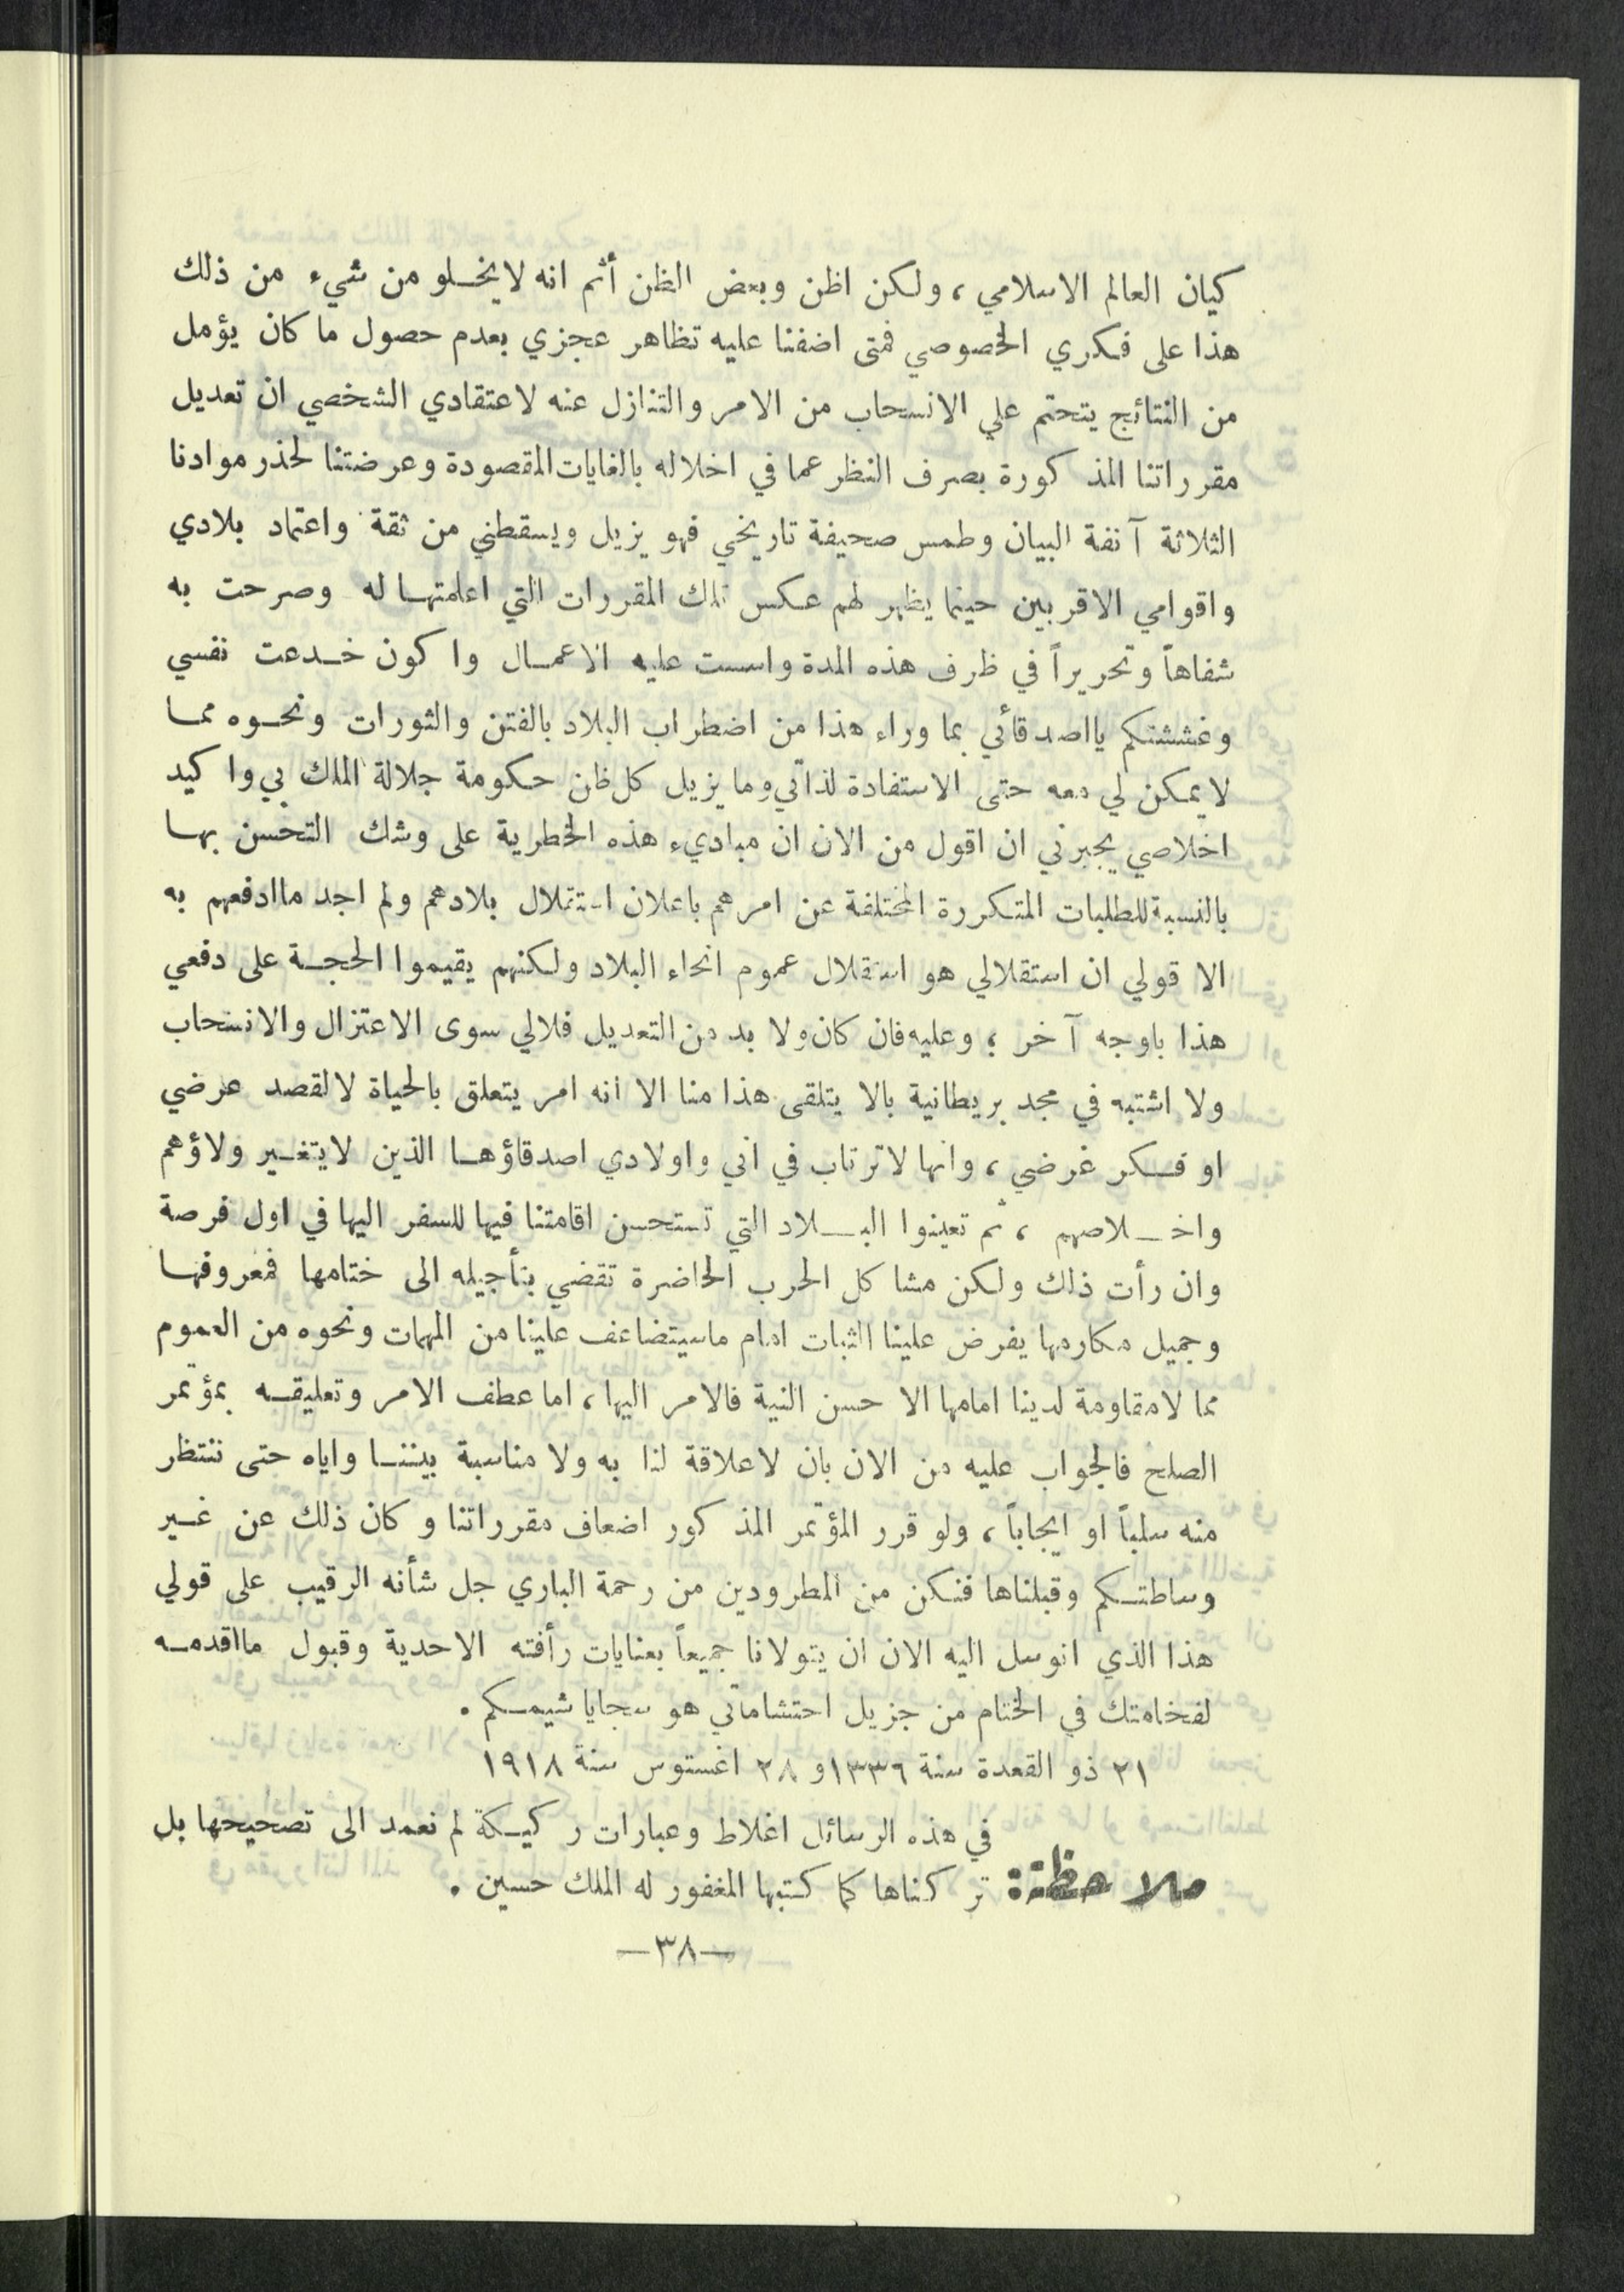 كيان العالم الاسلامي ، ولكن اظن وبعض الظن أثم انه لايخلو من شيء من ذلك
هذا على فكري الخصوصي فمتى اضفنا عليه تظاهر عجزي بعدم حصول ما كان يؤمل
من النتائج يتحتم علي الانسحاب من الامر والتنازل عنه لاعتقادي الشخصي ان تعديل
مقرراتنا المذكورة بصرف النظر عما في اخلاله بالغايات المقصودة وعرضتنا لحذر موادنا
الثلاثة آنفة البيان وطمس صحيفة تاريخي فهو يزيل ويسقطني من ثقة واعتماد بلادي
واقوامي الاقربين حينما يظهر لهم عكس تلك المقررات التي اعلمتها له وصرحت به
شفاهاً وتحريراً في ظرف هذه المدة واسست عليه الاعمال واكون خدعت نفسي
وغششتكم يااصدقائي بما وراء هذا من اضطراب البلاد بالفتن والثورات ونحوه مما
لايمكن لي معه حتى الاستفادة لذاتي وما يزيل كل ظن حكومة جلالة الملك بي واكيد
اخلاصي يجبرني ان اقول من الان ان مباديء هذه الخطرية على وشك التحسن بها
بالنسبة للطلبات المتكررة المختلفة عن امرهم باعلان استقلال بلادهم ولم اجد ماادفعهم به
الا قولي ان استقلالي هو استقلال عموم انحاء البلاد ولكنهم يقيموا الحجة على دفعي
هذا باوجه آخر ؛ وعليه فان كان ولا بد من التعديل فلالي سوى الاعتزال والانسحاب
ولا اشتبه في مجد بريطانية بالا يتلقى هذا منا الا انه امر يتعلق بالحياة لالقصد عرضي
او فكر غرضي ، وانها لاترتاب في اني واولادي اصدقاؤها الذين لايتغير ولاؤهم
واخلاصهم ، ثم تعينوا البلاد التي تستحسن اقامتنا فيها للسفر اليها في اول فرصة
وان رأت ذلك ولكن مشاكل الحرب الحاضرة تقضي بتأجيله الى ختامها فمعروفها
وجميل مكارمها يفرض علينا الثبات امام ماسيتضاعف علينا من المهمات ونحوه من العموم
مما لامقاومة لدينا امامها الا حسن النية فالامر اليها ، اما عطف الامر وتعليقه بمؤتمر
الصلح فالجواب عليه من الان بان لاعلاقة لنا به ولا مناسبة بيننا واياه حتى ننتظر
منه سلباً او ايجاباً ، ولو قرر المؤتمر المذكور اضعاف مقرراتنا وكان ذلك عن غير
وساطتكم وقبلناها فنكن من المطرودين من رحمة الباري جل شأنه الرقيب على قولي
هذا الذي اتوسل اليه الان ان يتولانا جميعاً بعنايات رأفته الاحدية وقبول مااقدمه
لفخامتك في الختام من جزيل احتشاماتي هو سجايا شيمكم .
٢١ ذو القعدة سنة ١٣٣٦ و ٢٨ اغستوس سنة ١٩١٨
في هذه الرسائل اغلاط وعبارات ركيكة لم نعمد الى تصحيحها بل
ملاحظة : تركناها كما كتبها المغفور له الملك حسين .
—٣٨—